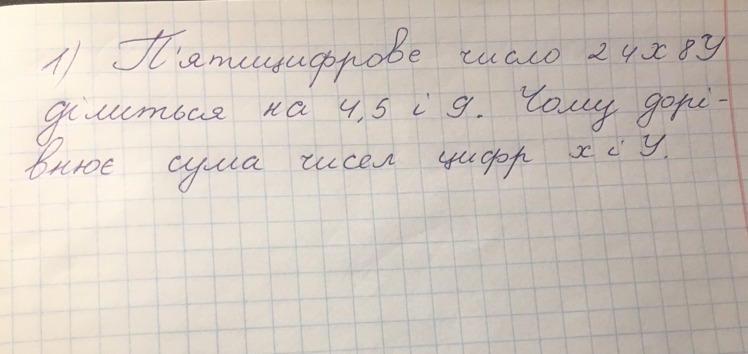 1) П'ятицифрове число 24x8y
ділиться на 4,5 і 9. Чому дорі-
внює сума чисел цифр x і y.